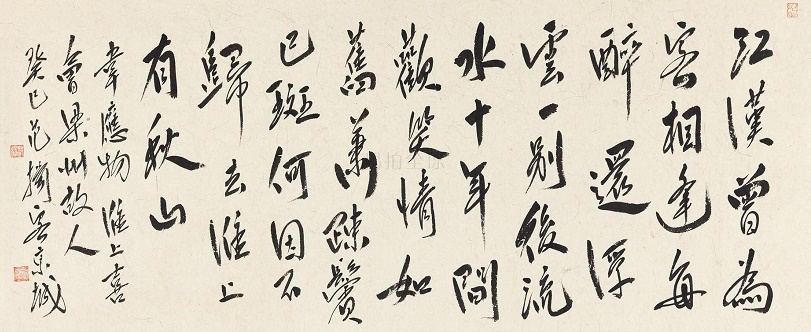 江漢曾為
客相逢每
醉還浮
雲一別後流
水十年間
歡笑情如
舊蕭疎鬢
已斑何因不
歸去淮上
有秋山
韋應物 淮上喜
會梁州故人
癸巳范揚客京城